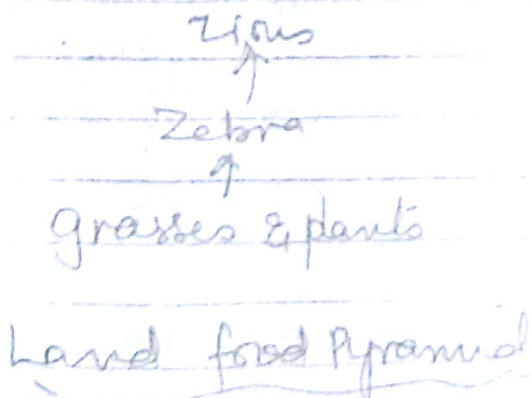 Lions
↑
Zebra
↑
grasses & plants
Land food Pyramid